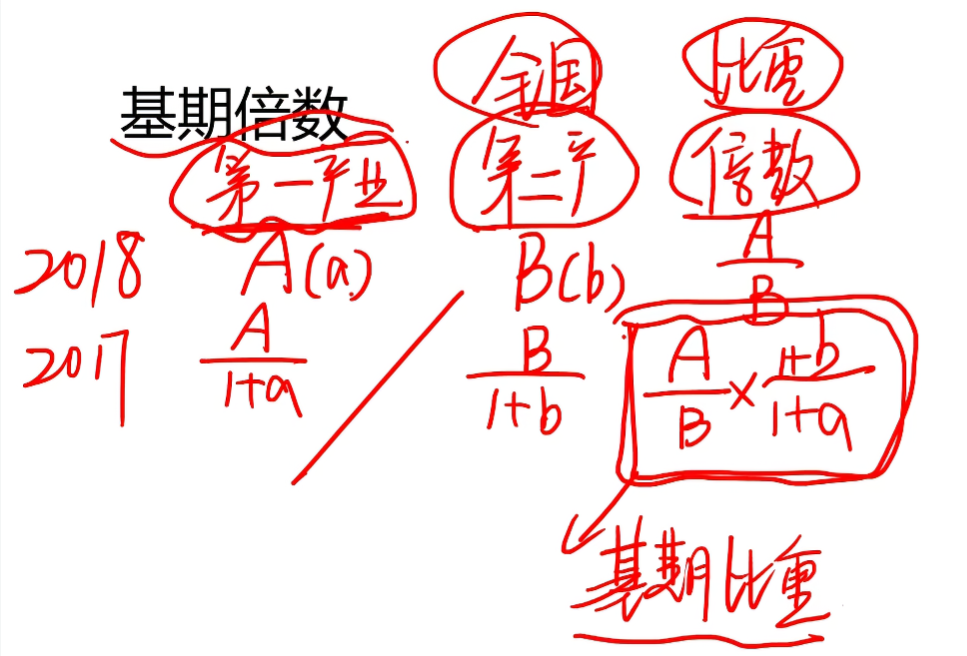 全国 比重
基期倍数
第一产业 第二产 倍数
2018 A(a) B(b) A/B
2017 A/1+a B/1+b A/B × 1+b/1+a
基期比重